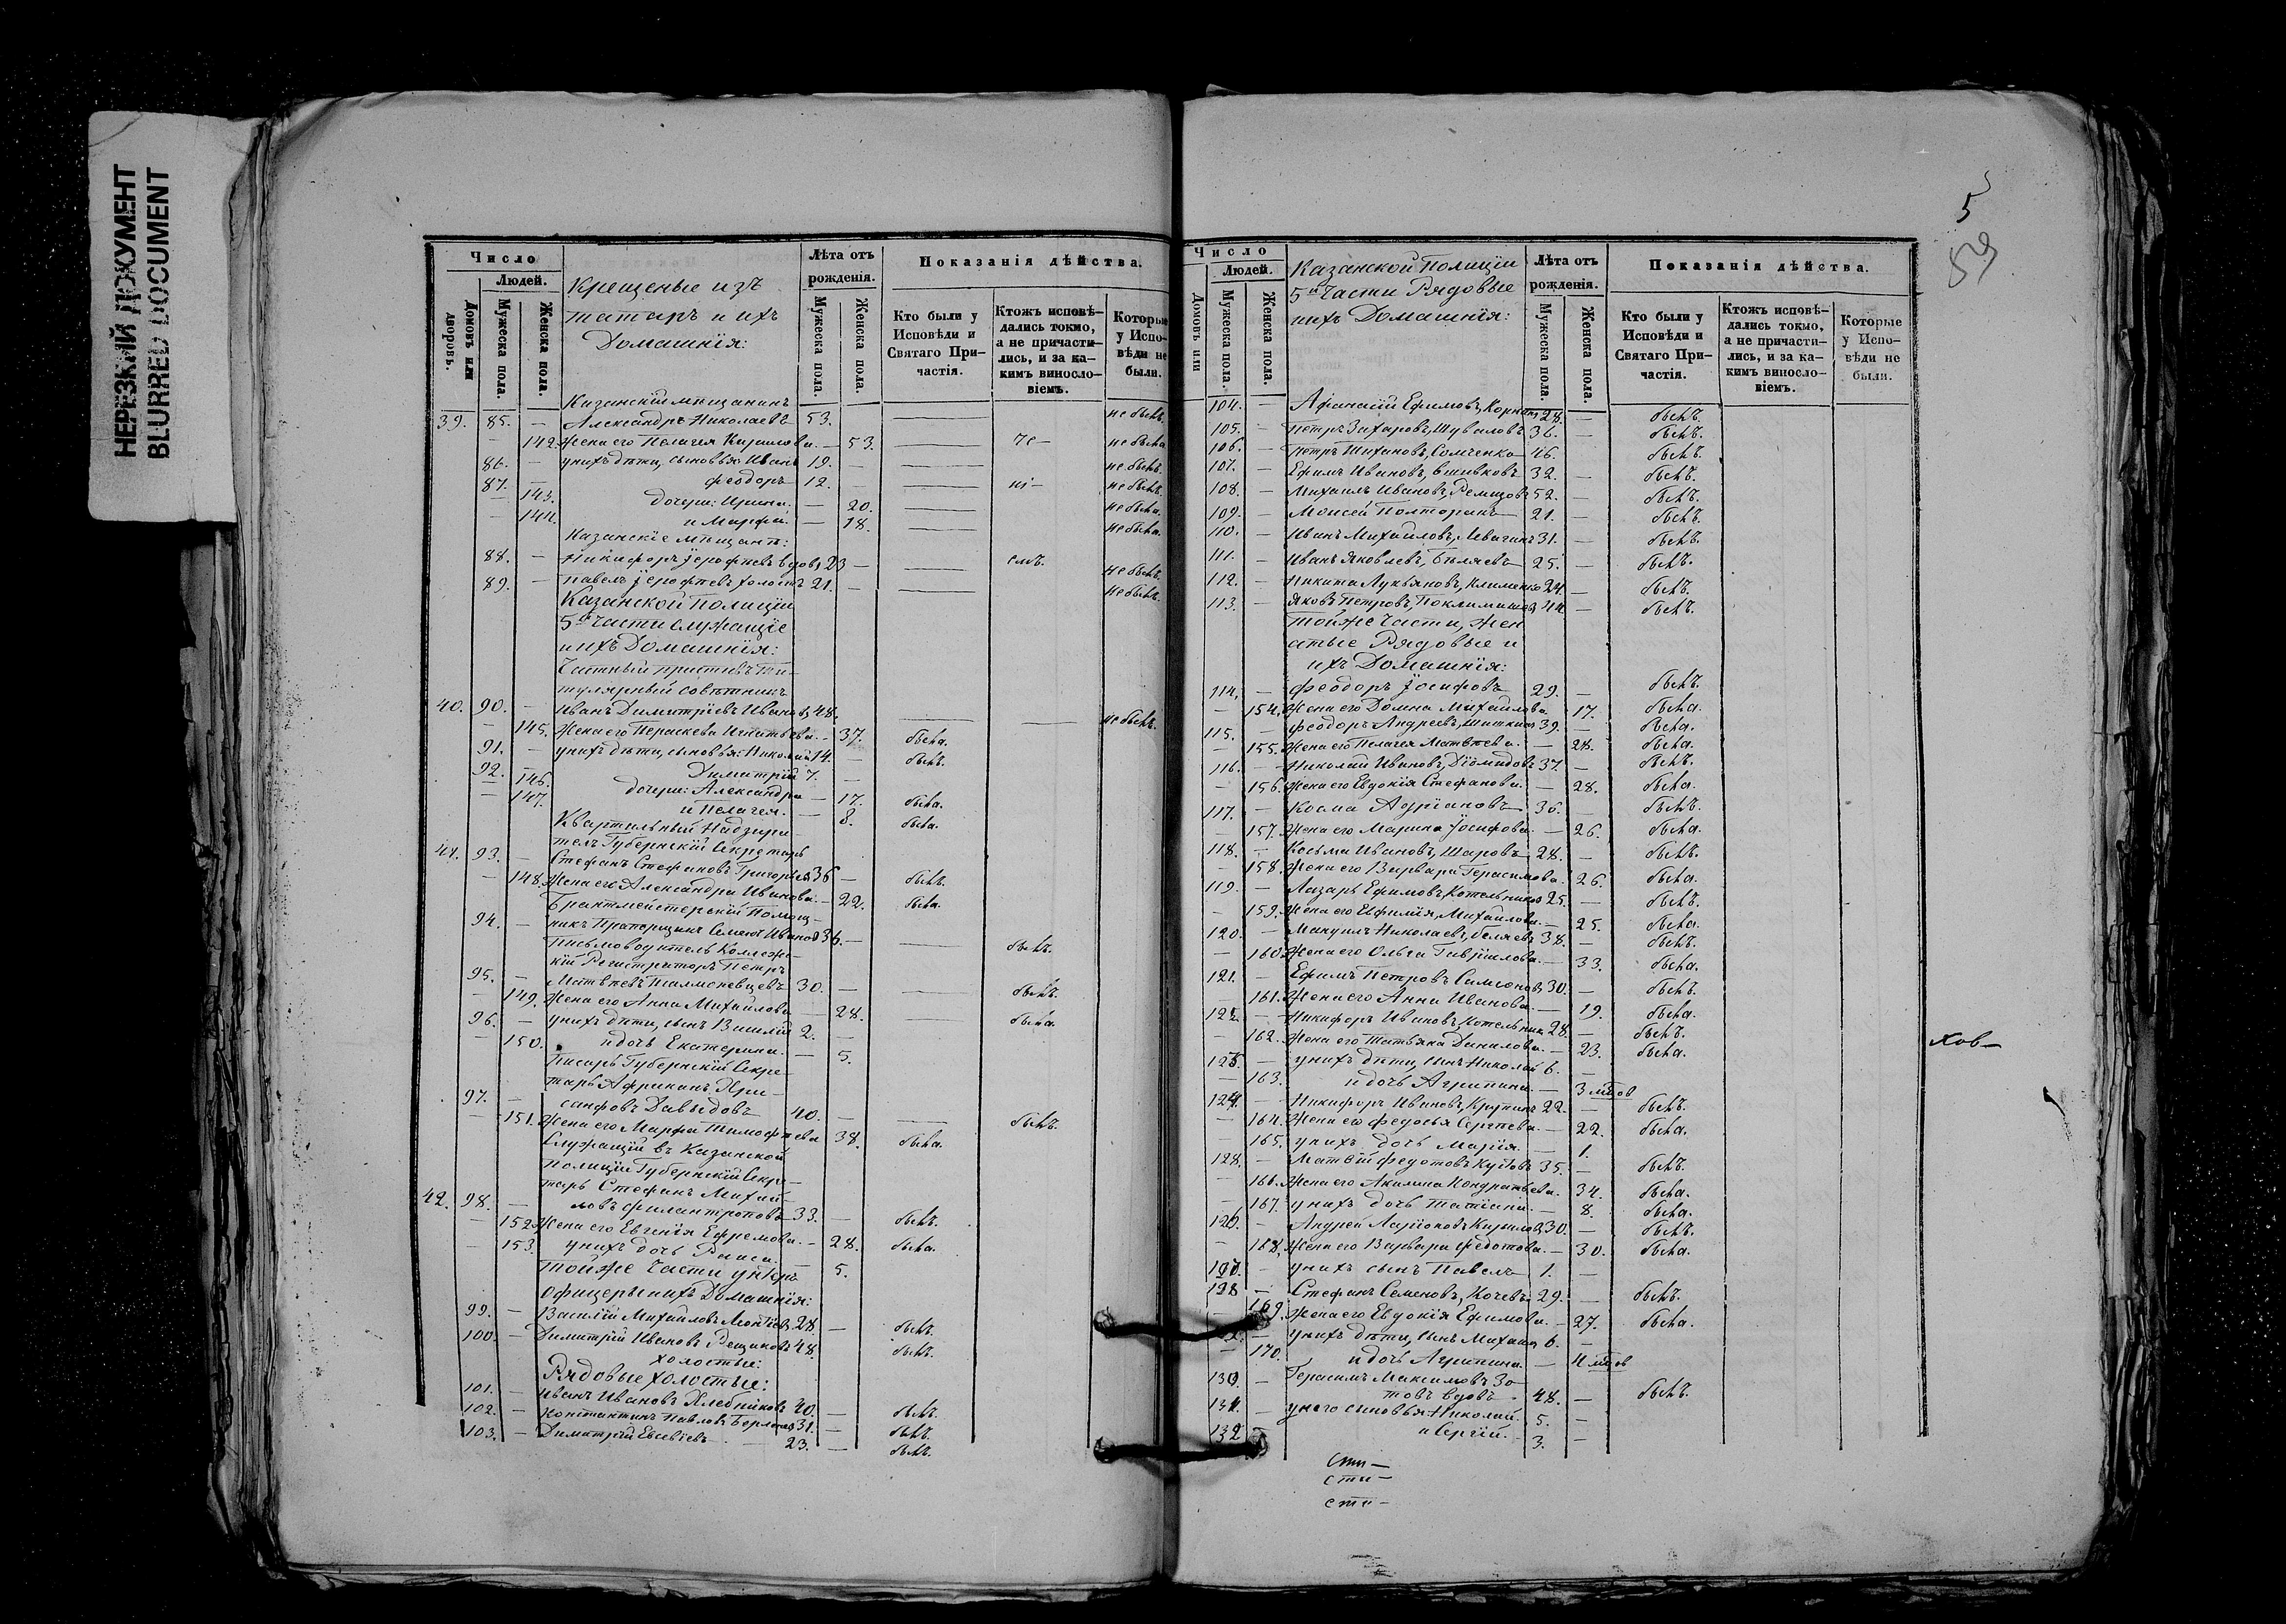 НЕРЕЗКИЙ ДОКУМЕНТ
BLURRED DOCUMENT
Число
Людей.
Домовъ или дворовъ.
Мужеска пола.
Женска пола.
Крещеные изъ
татаръ и ихъ
Домашнія:
Лѣта отъ
рожденія.
Мужеска пола.
Женска пола.
Показанія дѣйства.
Кто были у
Исповѣди и
Святаго При-
частія.
Ктожъ исповѣ-
дались токмо,
а не причасти-
лись, и за ка-
кимъ винosло-
віемъ.
Которые
у Испо-
вѣди не
были.
Казанскій мѣщанинъ
39. 85. — Александръ Николаевъ 53. — не былъ.
— 142. Жена его Пелагея Кирилова. — 53. не была
86. — у нихъ дѣти, сыновья: Иванъ 19. — не былъ.
87. — Феодоръ 12. — не былъ.
— 143. дочери: Ирина. — 20. не была.
— 144. и Марфа. — 18. не была.
Казанскіе мѣщане:
88. — Никифоръ Іерофеевъ вдовъ 23 — не былъ.
89. — Павелъ Іерофеевъ холостъ 21. — не былъ.
Казанской Полиціи
5й Части служащіе
и ихъ Домашнія:
Частный приставъ ти-
тулярный совѣтникъ
40. 90. — Иванъ Димитріевъ Ивановъ 48. не былъ.
— 145. Жена его Параскева Игнатьева. — 37. была.
91. — у нихъ дѣти, сыновья: Николай 14. — былъ.
92. — Димитрій 7. —
— 146. дочери: Александра — 17. была.
— 147. и Пелагея. — 8. была.
Квартальный Надзира-
тель Губернскій Секретарь
41. 93. — Стефанъ Стефановъ Григорьев 36 — былъ.
— 148. Жена его Александра Иванова. — 22. была.
Брантмейстерскій Помощ-
94. — никъ Прапорщикъ Семенъ Иванов 36. — былъ.
Письмоводитель Коллеж-
кій Регистраторъ Петръ
95. — Матвѣевъ 30. — былъ.
— 149. Жена его Анна Михайлова — 28. была.
96. — у нихъ дѣти, сынъ Василій 2. —
— 150. и дочь Екатерина. — 5.
Писарь Губернскій Секре-
тарь Африканъ Хри-
97. — санфовъ Давыдовъ 40. — былъ.
— 151. Жена его Марфа Тимофеева 38. была.
Служащій въ Казанской
Полиціи Губернскій Секре-
тарь Стефанъ Михай-
42. 98. — ловъ Филантроповъ 33. — былъ.
— 152. Жена его Евгенія Ефремова. — 28. была.
— 153. у нихъ дочь Раиса. 5.
Тойже Части унтеръ
Офицеры и ихъ Домашнія:
99. — Василій Михайловъ 28. — былъ.
100. — Димитрій Ивановъ Рещиковъ 48. былъ.
холостые:
Рядовые холостые:
101. — Иванъ Ивановъ Хлебниковъ 40. — былъ.
102. — Константинъ Павловъ 31. — былъ.
103. — Димитрій Евсевіевъ 23. — былъ.
5
89
Число
Людей.
Домовъ или
Мужеска пола.
Женска пола.
Казанской Полиціи
5й Части Рядовые
и ихъ Домашнія:
Лѣта отъ
рожденія.
Мужеска пола.
Женска пола.
Показанія дѣйства.
Кто были у
Исповѣди и
Святаго При-
частія.
Ктожъ исповѣ-
дались токмо,
а не причасти-
лись, и за ка-
кимъ винosло-
віемъ.
Которые
у Испо-
вѣди не
были.
104. — Афанасій Ефимовъ, 28. — былъ.
105. — Петръ Захаровъ, Шуваловъ 36. — былъ.
106. — Петръ Тихановъ, Сомченко 46. былъ.
107. — Ефимъ Ивановъ, Вшивковъ 32. — былъ.
108. — Михаилъ Ивановъ, Ремизовъ 52. — былъ.
109. — Моисей Полторакъ 21. — былъ.
110. — Иванъ Михайловъ, 31. — былъ.
111. — Иванъ Яковлевъ, Бѣляевъ 25. — былъ.
112. — Никита Лукьяновъ, Клименко 24 — былъ.
113. — Яковъ Петровъ, 44. — былъ.
Тойже Части, жен
атые Рядовые и
ихъ Домашнія:
114. — Феодоръ Іосифовъ 29. — былъ.
— 154. Жена его Домна Михайлова. 17. была.
115. — Феодоръ Андреевъ, 39. — былъ.
— 155. Жена его Пелагея Матвѣева. — 28. была.
116. — Николай Ивановъ, Діомидовъ 37. — былъ.
— 156. Жена его Евдокія Стефанова. — 28. была.
117. — Косма Адріановъ 36. — былъ.
— 157. Жена его Марина Іосифова. — 26. была.
118. — Косьма Ивановъ, Шаровъ 28. — былъ.
— 158. Жена его Варвара Герасимова. 26. была.
119. — Лазарь Ефимовъ Котельников 25. — былъ.
— 159. Жена его Евфимія, Михайлова. — 25. была.
120. — Мануилъ Николаевъ, Беляевъ 38. — былъ.
— 160. Жена его Ольга Гавріилова. — 33. была.
121. — Ефимъ Петровъ Самсонов 30. — былъ.
— 161. Жена его Анна Иванова. — 19. была.
122. — Никифоръ Ивановъ, Котельник 28. — былъ.
— 162. Жена его Татьяна Данилова. — 23. была.
123. — у нихъ дѣти, сынъ Николай 6. —
— 163. и дочь Агрипина. — 3 мѣсов
124. — Никифоръ Ивановъ, 22. — былъ.
— 164. Жена его Федосья Сергѣева. — 22. была.
— 165. у нихъ дочь Марія. — 1.
125. — Матвѣй Федотовъ 35. — былъ.
— 166. Жена его Акилина Кондратьева. 34. была.
— 167. у нихъ дочь Татіана. — 8. была.
126. — Андрей Ларіоновъ Кирилов 30. — былъ.
— 168. Жена его Варвара Федотова. — 30. была.
127. — у нихъ сынъ Павелъ 1. —
128. — Стефанъ Семеновъ, Кочевъ 29. — былъ.
— 169. Жена его Евдокія Ефимова. — 27. была.
— у нихъ дѣти, сынъ Михаил 6. —
— 170. и дочь Агрипина. — 4 мѣсов
130. — Герасимъ Максимовъ Зо-
товъ вдовъ 48. — былъ.
131. — у него сыновья: Николай. 5. —
132 — и Сергій. 3. —
хов—
сти—
сти—
сти—